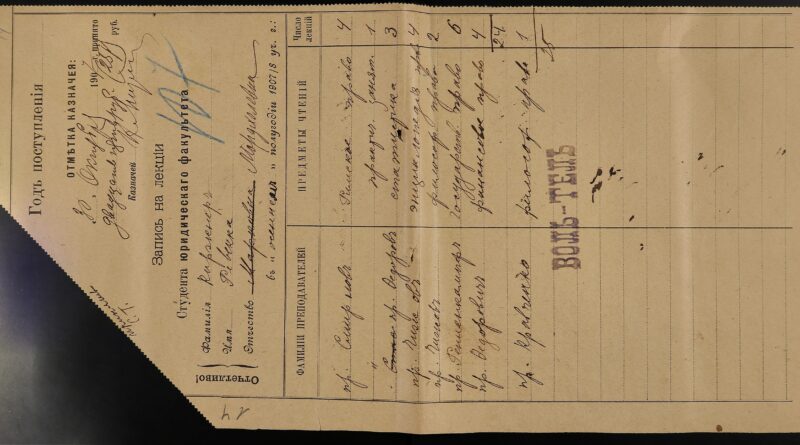 Годъ поступленія
ОТМѢТКА КАЗНАЧЕЯ:
30 Октября 190 принято
Двадцать руб.
Казначей
Запись на лекціи
Студента юридическаго факультета
107
Отчетливо!
Фамилія Кирзнеръ
Имя Ревекка
Отчество Марковна
въ " осеннемъ " полугодіи 1907/8 уч. г.:
ФАМИЛІИ ПРЕПОДАВАТЕЛЕЙ ПРЕДМЕТЫ ЧТЕНІЙ Число лекцій
пр. Смирновъ Римское право 4
" практич. занят. 1
пр. Федоровъ статистика 3
пр. энциклопедія права 4
пр. философ. право 2
пр. Государств. право 6
пр. Федоровичъ финансовое право 4
24
пр. Кравченко философ. прав. 1
25
ВОЛЬ-ТЕЛЬ
14